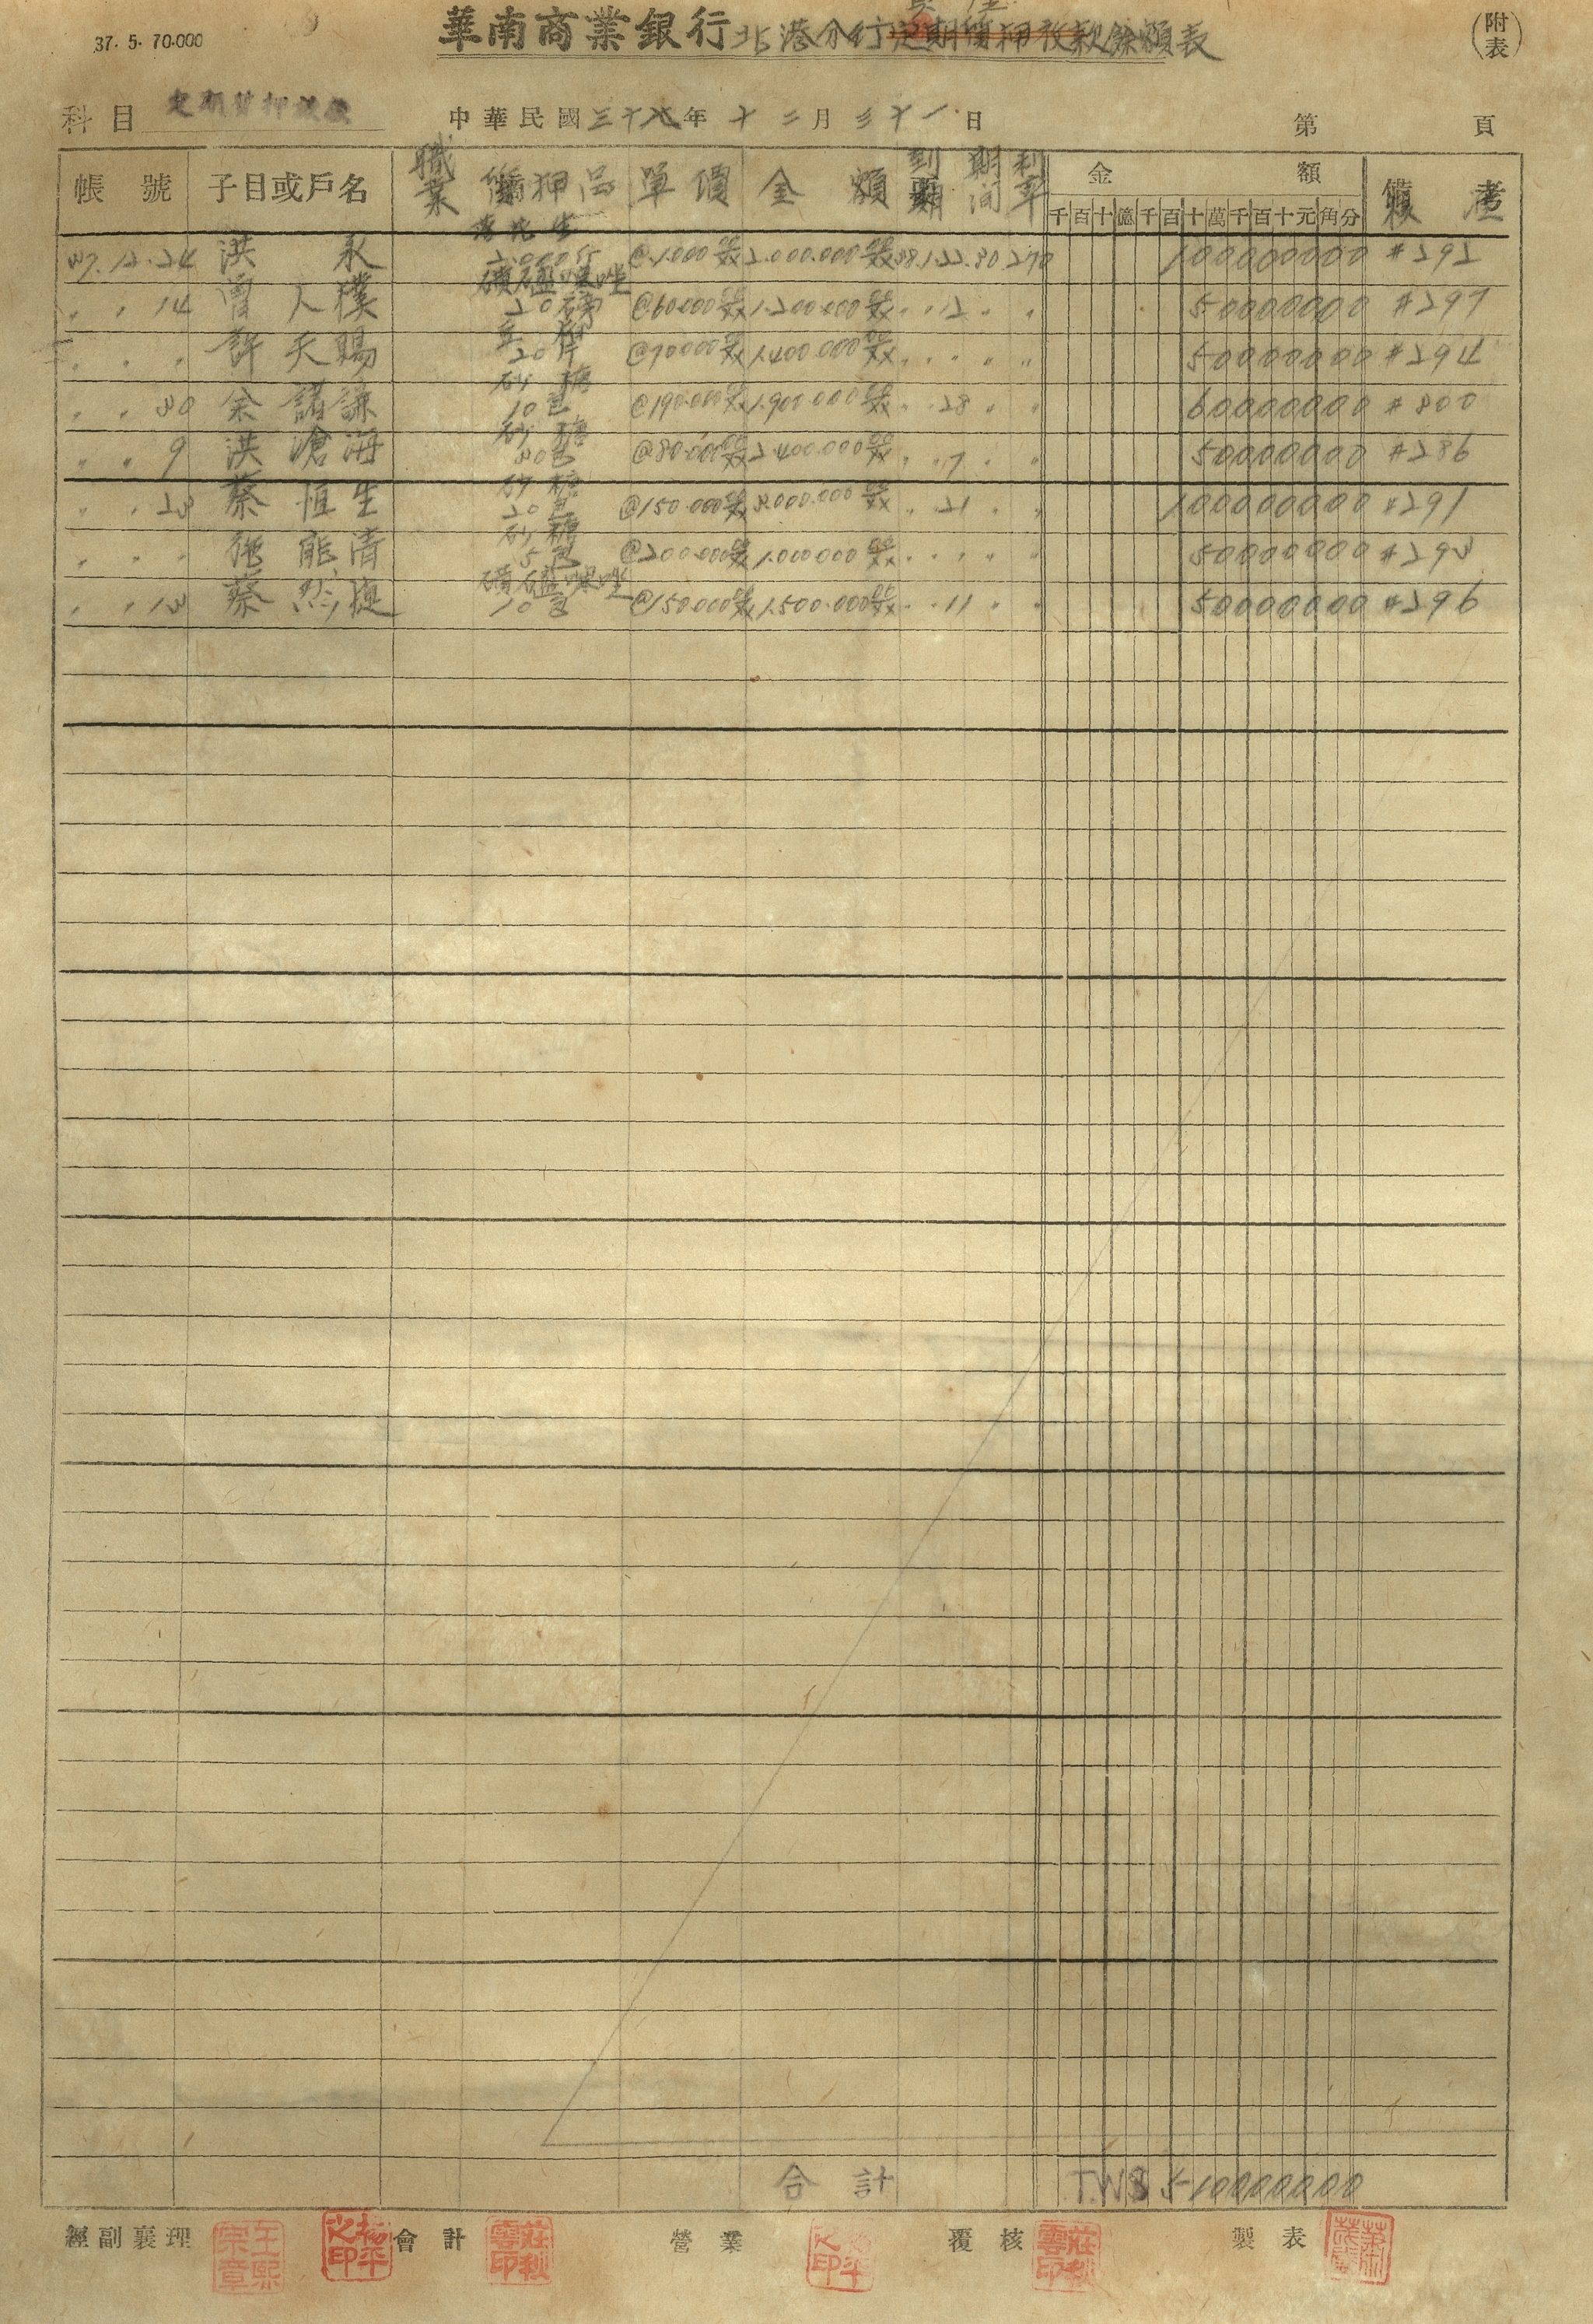 37. 5. 70.000
華南商業銀行北港分行定期質押放款餘額表
(附表)
科目 定期質押放款 中華民國三十七年十二月三十一日 第 頁
帳號 子目或戶名 職業 質押品 單價 金額 到期 期間 利率 金額 備考
千百十億千百十萬千百十元角分
37.12.24 洪永 落花生 2.000斤 @1.000 2.000.000 38.1.22. 30 270 100000000 #292
〃 〃 14 曾人樸 20磅 @60000 1.200.000 〃 〃 12 〃 〃 50000000 #297
〃 〃 〃 許天賜 豆粕 20片 @70000 1.400.000 〃 〃 〃 〃 〃 50000000 #294
〃 〃 30 余諾謙 砂糖 10包 @190.000 1.900.000 〃 〃 28 〃 〃 60000000 #300
〃 〃 9 洪滄海 砂糖 30包 @80.000 2.400.000 〃 〃 7 〃 〃 50000000 #286
〃 〃 23 蔡恒生 砂糖 20包 @150.000 3.000.000 〃 〃 21 〃 〃 100000000 #291
〃 〃 〃 能清 砂糖 5包 @200.000 1.000.000 〃 〃 〃 〃 〃 50000000 #293
〃 〃 13 蔡 10包 @150.000 1.500.000 〃 〃 11 〃 〃 50000000 #296
合計 T.W$ 510000000
經副襄理 王熙宗章 會計 莊秋雲印 營業 覆核 莊秋雲印 製表